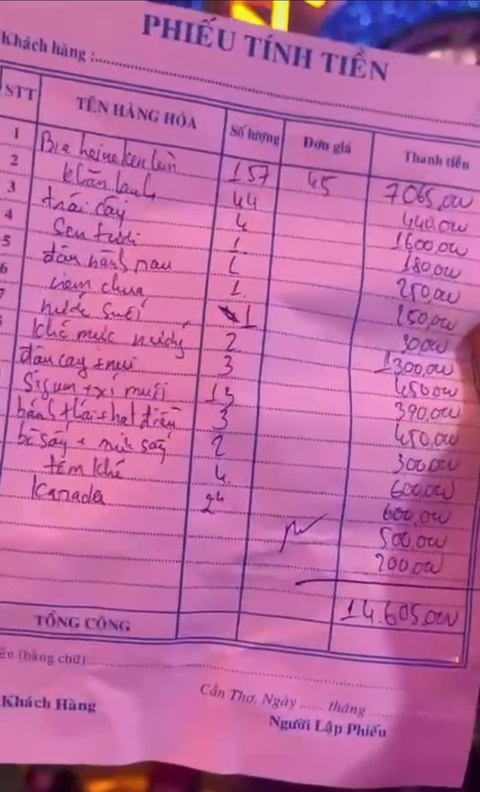 PHIẾU TÍNH TIỀN
Khách hàng :
STT TÊN HÀNG HÓA Số lượng Đơn giá Thành tiền
1 Bia heineken lùn 157 45 7065,000
2 khăn lạnh 44 440,000
3 trái cây 4 1600,000
4 Sen tươi 1 180,000
5 đậu hành nau 250,000
6 nem chua 1 150,000
7 nước Suối 1 30,000
Khô mực nướng 2 1300,000
đậu cay + nui 3 450,000
Sigum + xí muội 13 390,000
bánh + hạt điều 3 450,000
bò sấy + mực sấy 2 300,000
tôm khô 4 600,000
Kanada 2 600,000
500,000
200,000
14.605,000
TỔNG CỘNG
(bằng chữ)
Cần Thơ, Ngày ...... tháng
Khách Hàng Người Lập Phiếu